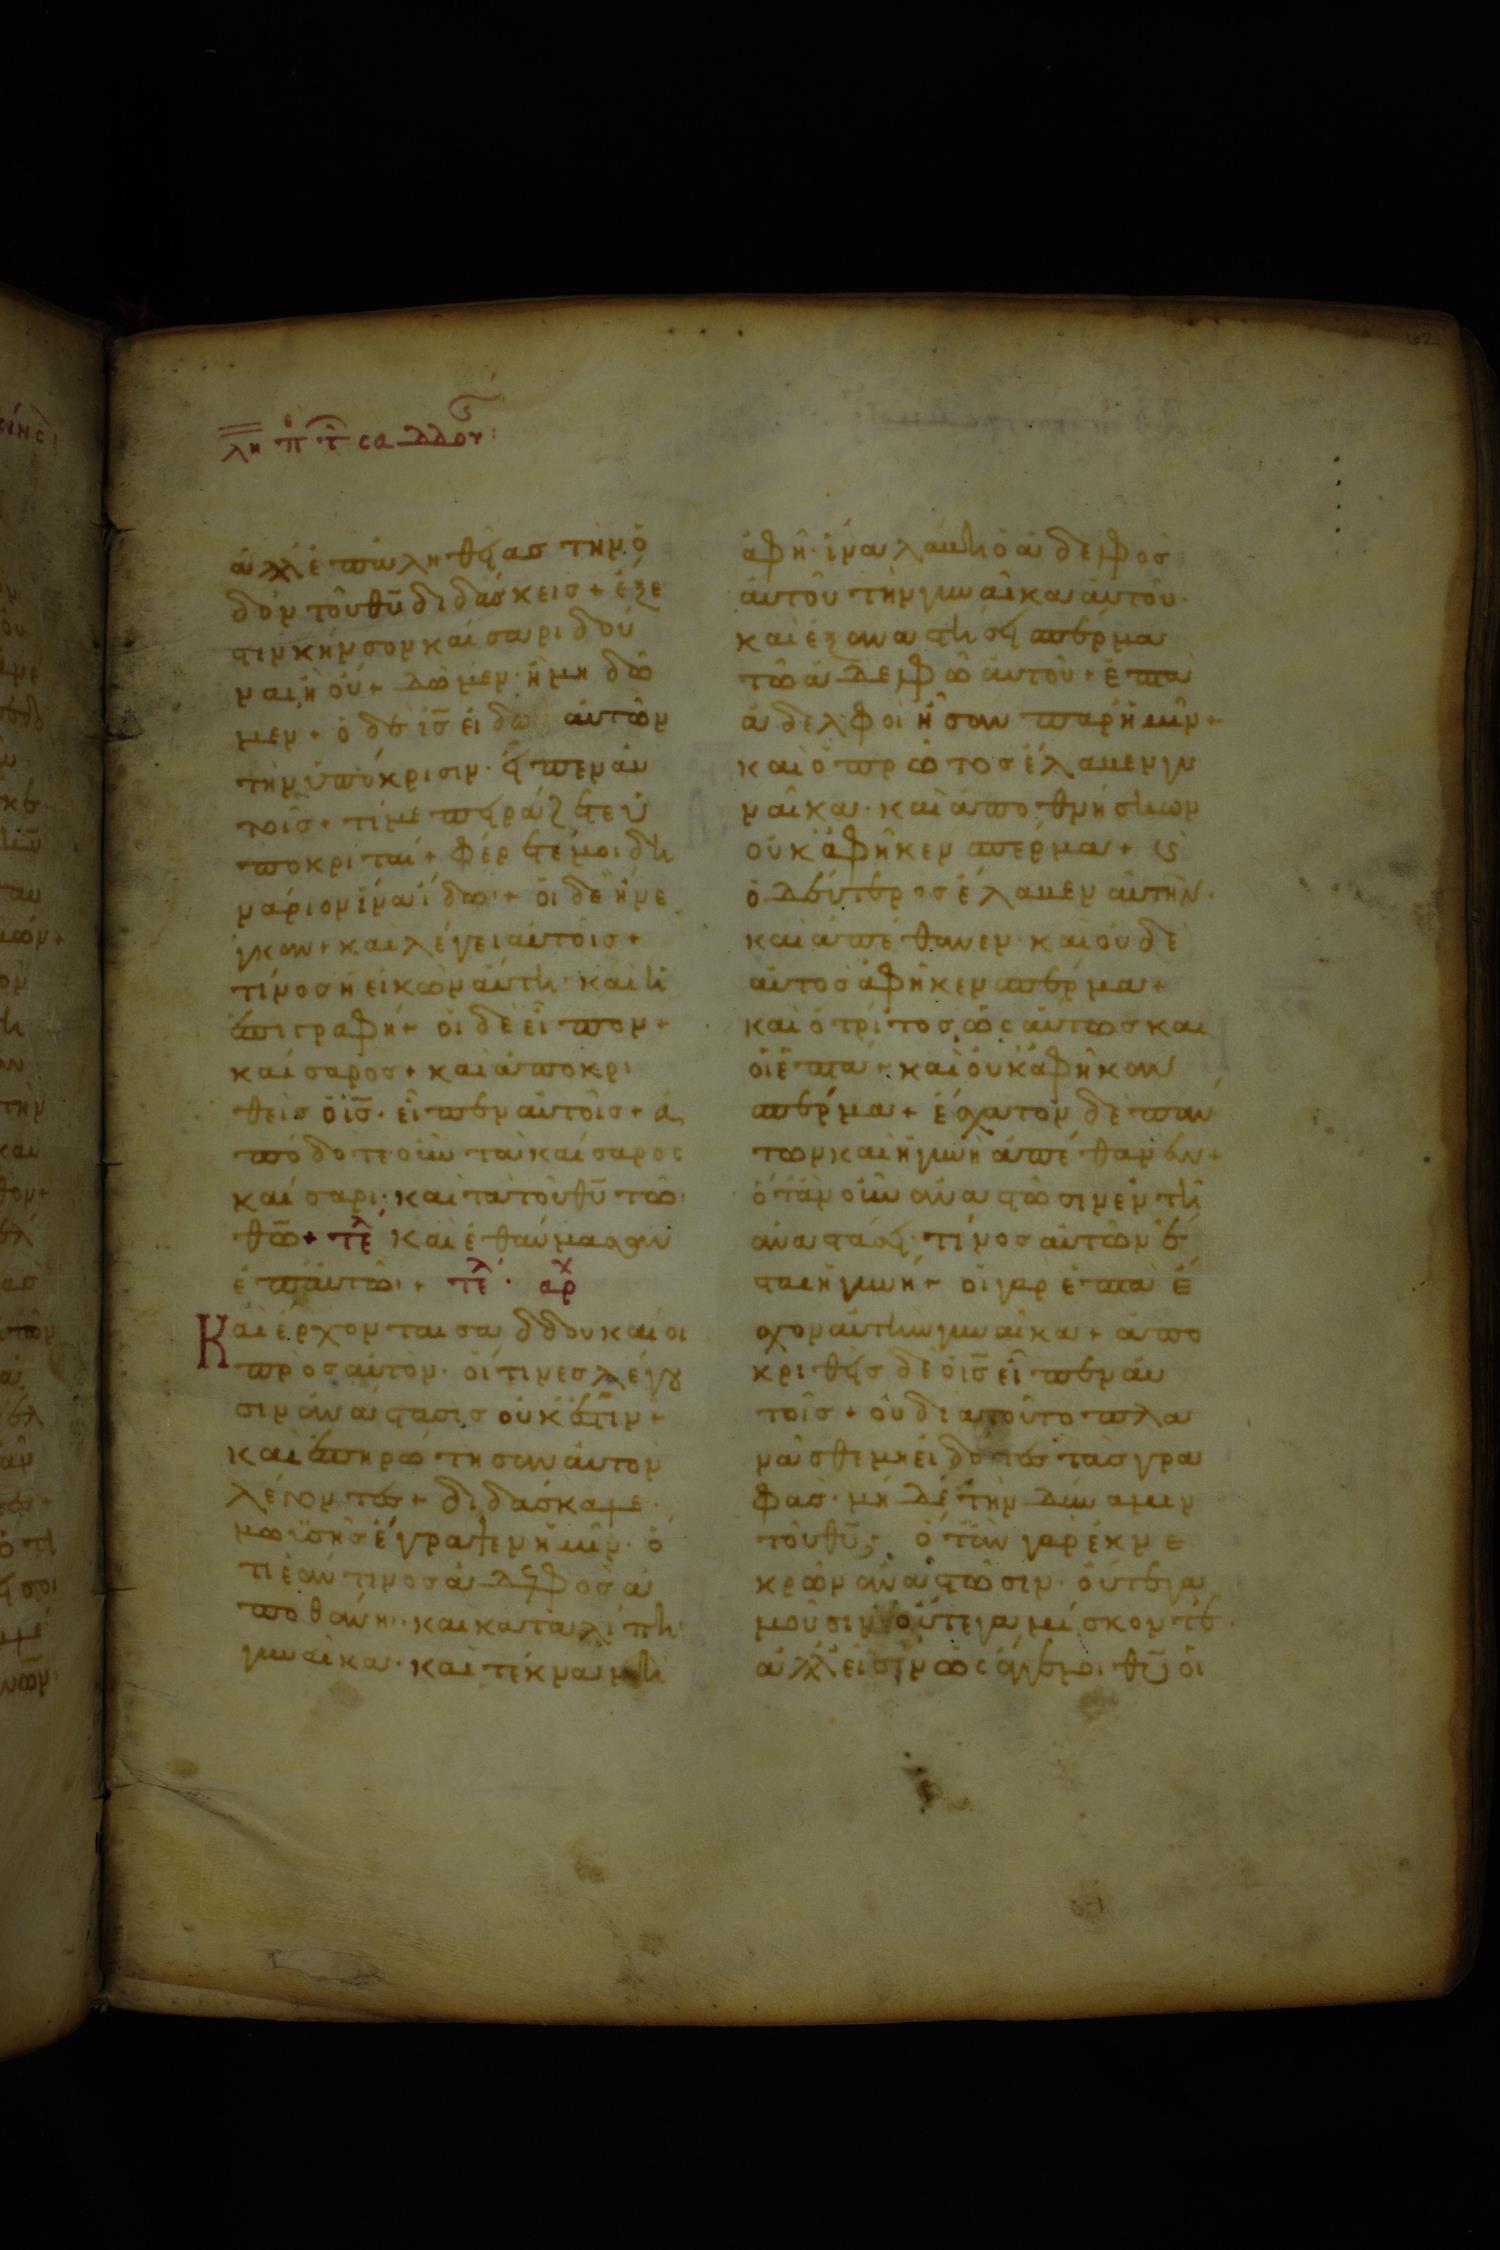 λη π τ σαδδου:
ἀλλ' ἐπ' ἀληθείας τὴν ὁ
δὸν τοῦ θῦ διδάσκεις + ἔξε
στιν κῆνσον καίσαρι δοῦ
ναι ἢ οὔ + δῶμεν· ἢ μὴ δῶ
μεν + ὁ δὲ ἰς εἰδὼ αὐτῶν
τὴν ὑπόκρισιν· εἶπεν αὐ
τοῖς + τί με πειράζετε ὑ
ποκριταί + φέρετέ μοι δη
νάριον ἵνα ἴδω + οἱ δὲ ἤνε
γκαν + καὶ λέγει αὐτοῖς +
τίνος ἡ εἰκὼν αὕτη· καὶ ἡ
ἐπιγραφή + οἱ δὲ εἶπον +
καίσαρος + καὶ ἀποκρι
θεὶς ὁ ἰς· εἶπεν αὐτοῖς + ἀ
πόδοτε οὖν τὰ καίσαρος
καίσαρι· καὶ τὰ τοῦ θῦ τῶ
θῶ + τέλ καὶ ἐθαύμασαν
ἐπ' αὐτῶ + τέλ· αρχ
Καὶ ἔρχονται σαδδουκαιοι
πρὸς αὐτὸν· οἵτινες λέγου
σιν ἀνάστασις οὐκ ἔστιν +
καὶ ἐπηρώτησαν αὐτὸν
λέγοντες + διδάσκαλε·
μωϋσῆς ἔγραψεν ἡμῖν· ὅ
τι ἐάν τινος ἀδελφὸς ἀ
ποθάνη· καὶ καταλίπη
γυναῖκα· καὶ τέκνα μὴ
ἀφῆ· ἵνα λάβη ὁ ἀδελφὸς
αὐτοῦ τὴν γυναῖκα αὐτοῦ·
καὶ ἐξαναστήσει σπέρμα
τῶ ἀδελφῶ αὐτοῦ + ἑπτὰ
ἀδελφοὶ ἦσαν παρ' ἡμῖν +
καὶ ὁ πρῶτος ἔλαβεν γυ
ναῖκα· καὶ ἀποθνήσκων
οὐκ ἀφῆκεν σπέρμα + ϗ
ὁ δεύτερος ἔλαβεν αὐτὴν·
καὶ ἀπέθανεν· καὶ οὐδὲ
αὐτὸς ἀφῆκεν σπέρμα +
καὶ ὁ τρίτος ὡςαύτως και
οἱ ἑπτὰ + καὶ οὐκ ἀφῆκαν
σπέρμα + ἔσχατον δὲ παν
των καὶ ἡ γυνὴ ἀπέθανεν +
ὅταν οὖν ἀναστῶσιν ἐν τῆ
ἀναστάσει· τίνος αὐτῶν ἔ
σται ἡ γυνή + οἱ γὰρ ἑπτὰ ἔ
σχον αὐτὴν γυναῖκα + ἀπο
κριθεὶς δὲ ὁ ἰς εἶπεν αὐ
τοῖς + οὐ διὰ τοῦτο πλα
νᾶσθε μὴ εἰδότες τὰς γρα
φὰς· μὴ δὲ τὴν δύναμιν
τοῦ θῦ; ὅταν γὰρ ἐκ νε
κρῶν ἀναστῶσιν· οὔτε γα
μοῦσιν οὔτε γαμίσκονται·
ἀλλ' εἰσὶν ὡς ἄγγελοι θῦ οἱ